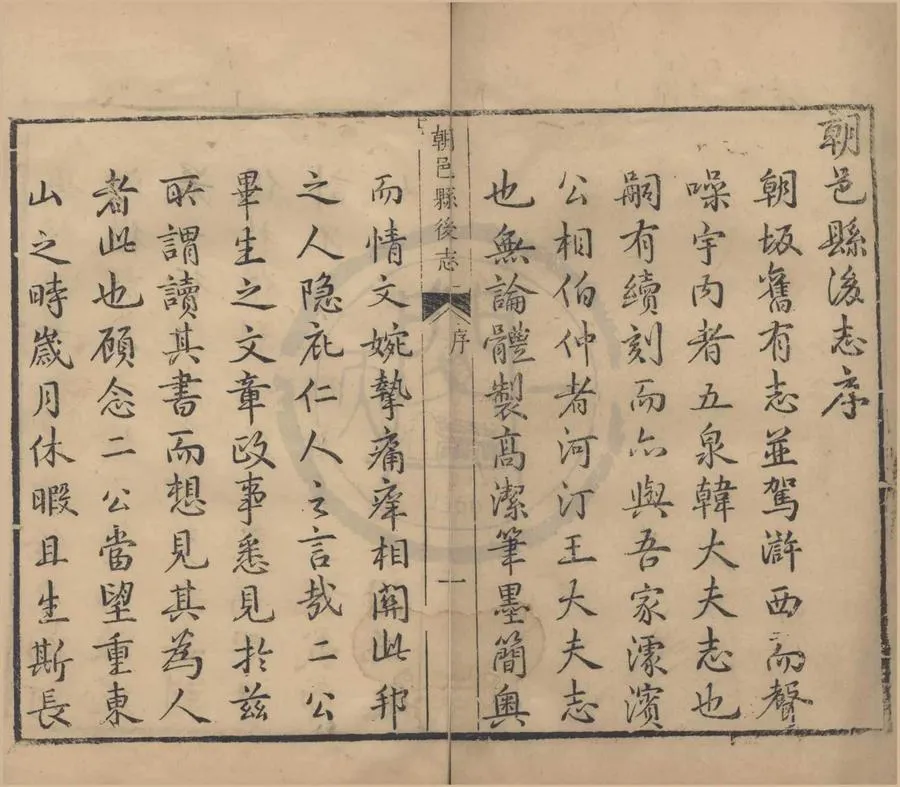 朝邑縣後志序
朝坂舊有志並駕滸西而聲
噪宇内者五泉韓大夫志也
嗣有續刻而亦與吾家濛濱
公相伯仲者河汀王大夫志
也無論體製高潔筆墨簡奧
朝邑縣後志
序
一
而情文婉摯痛痒相關此邦
之人隐庇仁人之言哉二公
畢生之文章政事悉見於兹
所謂讀其書而想見其為人
者此也顧念二公當望重東
山之時歲月休暇且生斯長